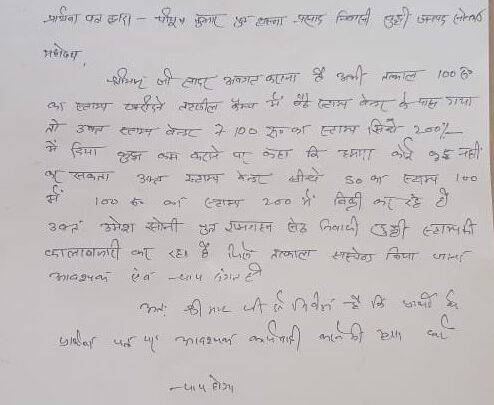 प्रार्थना पत्र द्वारा - पीयूष कुमार पुत्र प्रसाद निवासी दुद्धी जनपद सोनभद्र
महोदय,
श्रीमान जी सादर अवगत कराना है अभी तत्काल 100 रू
का स्टाम्प खरीदने तहसील कैम्पस में बैठे स्टाम्प वेन्डर के पास गया
तो उक्त स्टाम्प वेन्डर ने 100 रू० का स्टाम्प सिर्फ 200/-
में दिया कुछ कम कराने पर कहा कि हमारा कोई कुछ नहीं
कर सकता उक्त स्टाम्प वेन्डर 50 का स्टाम्प 100
में 100 रू का स्टाम्प 200 में बिक्री कर रहे है
उक्त उमेश सोनी पुत्र सेठ निवासी दुद्धी स्टाम्प की
कालाबाजारी कर रहा है जिसे तत्काल किया जाना
आवश्यक एवं न्याय संगत है
अतः श्रीमान जी से निवेदन है कि प्रार्थी के
प्रार्थना पत्र पर आवश्यक कार्यवाही करने की कृपा करें
न्याय होगा